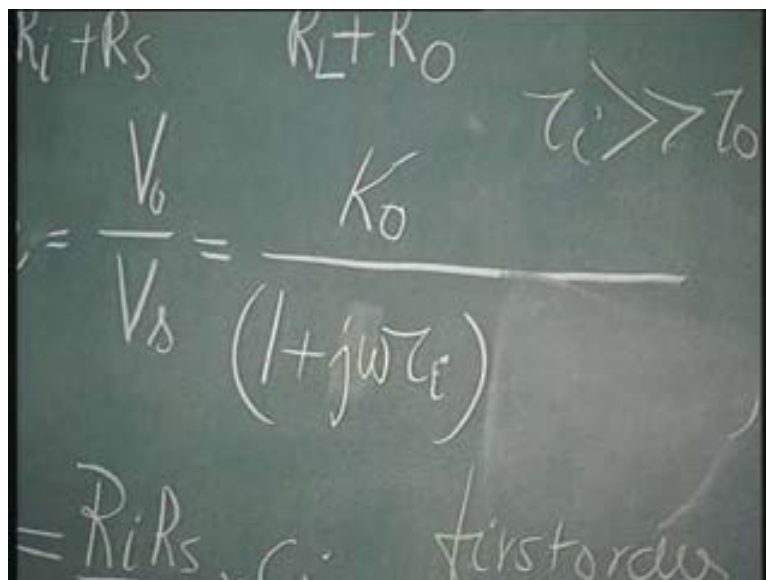 Ri + Rs RL + RO
τi >> τo
= Vo / Vs = KO / (1 + jωτi)
= Ri Rs
first order